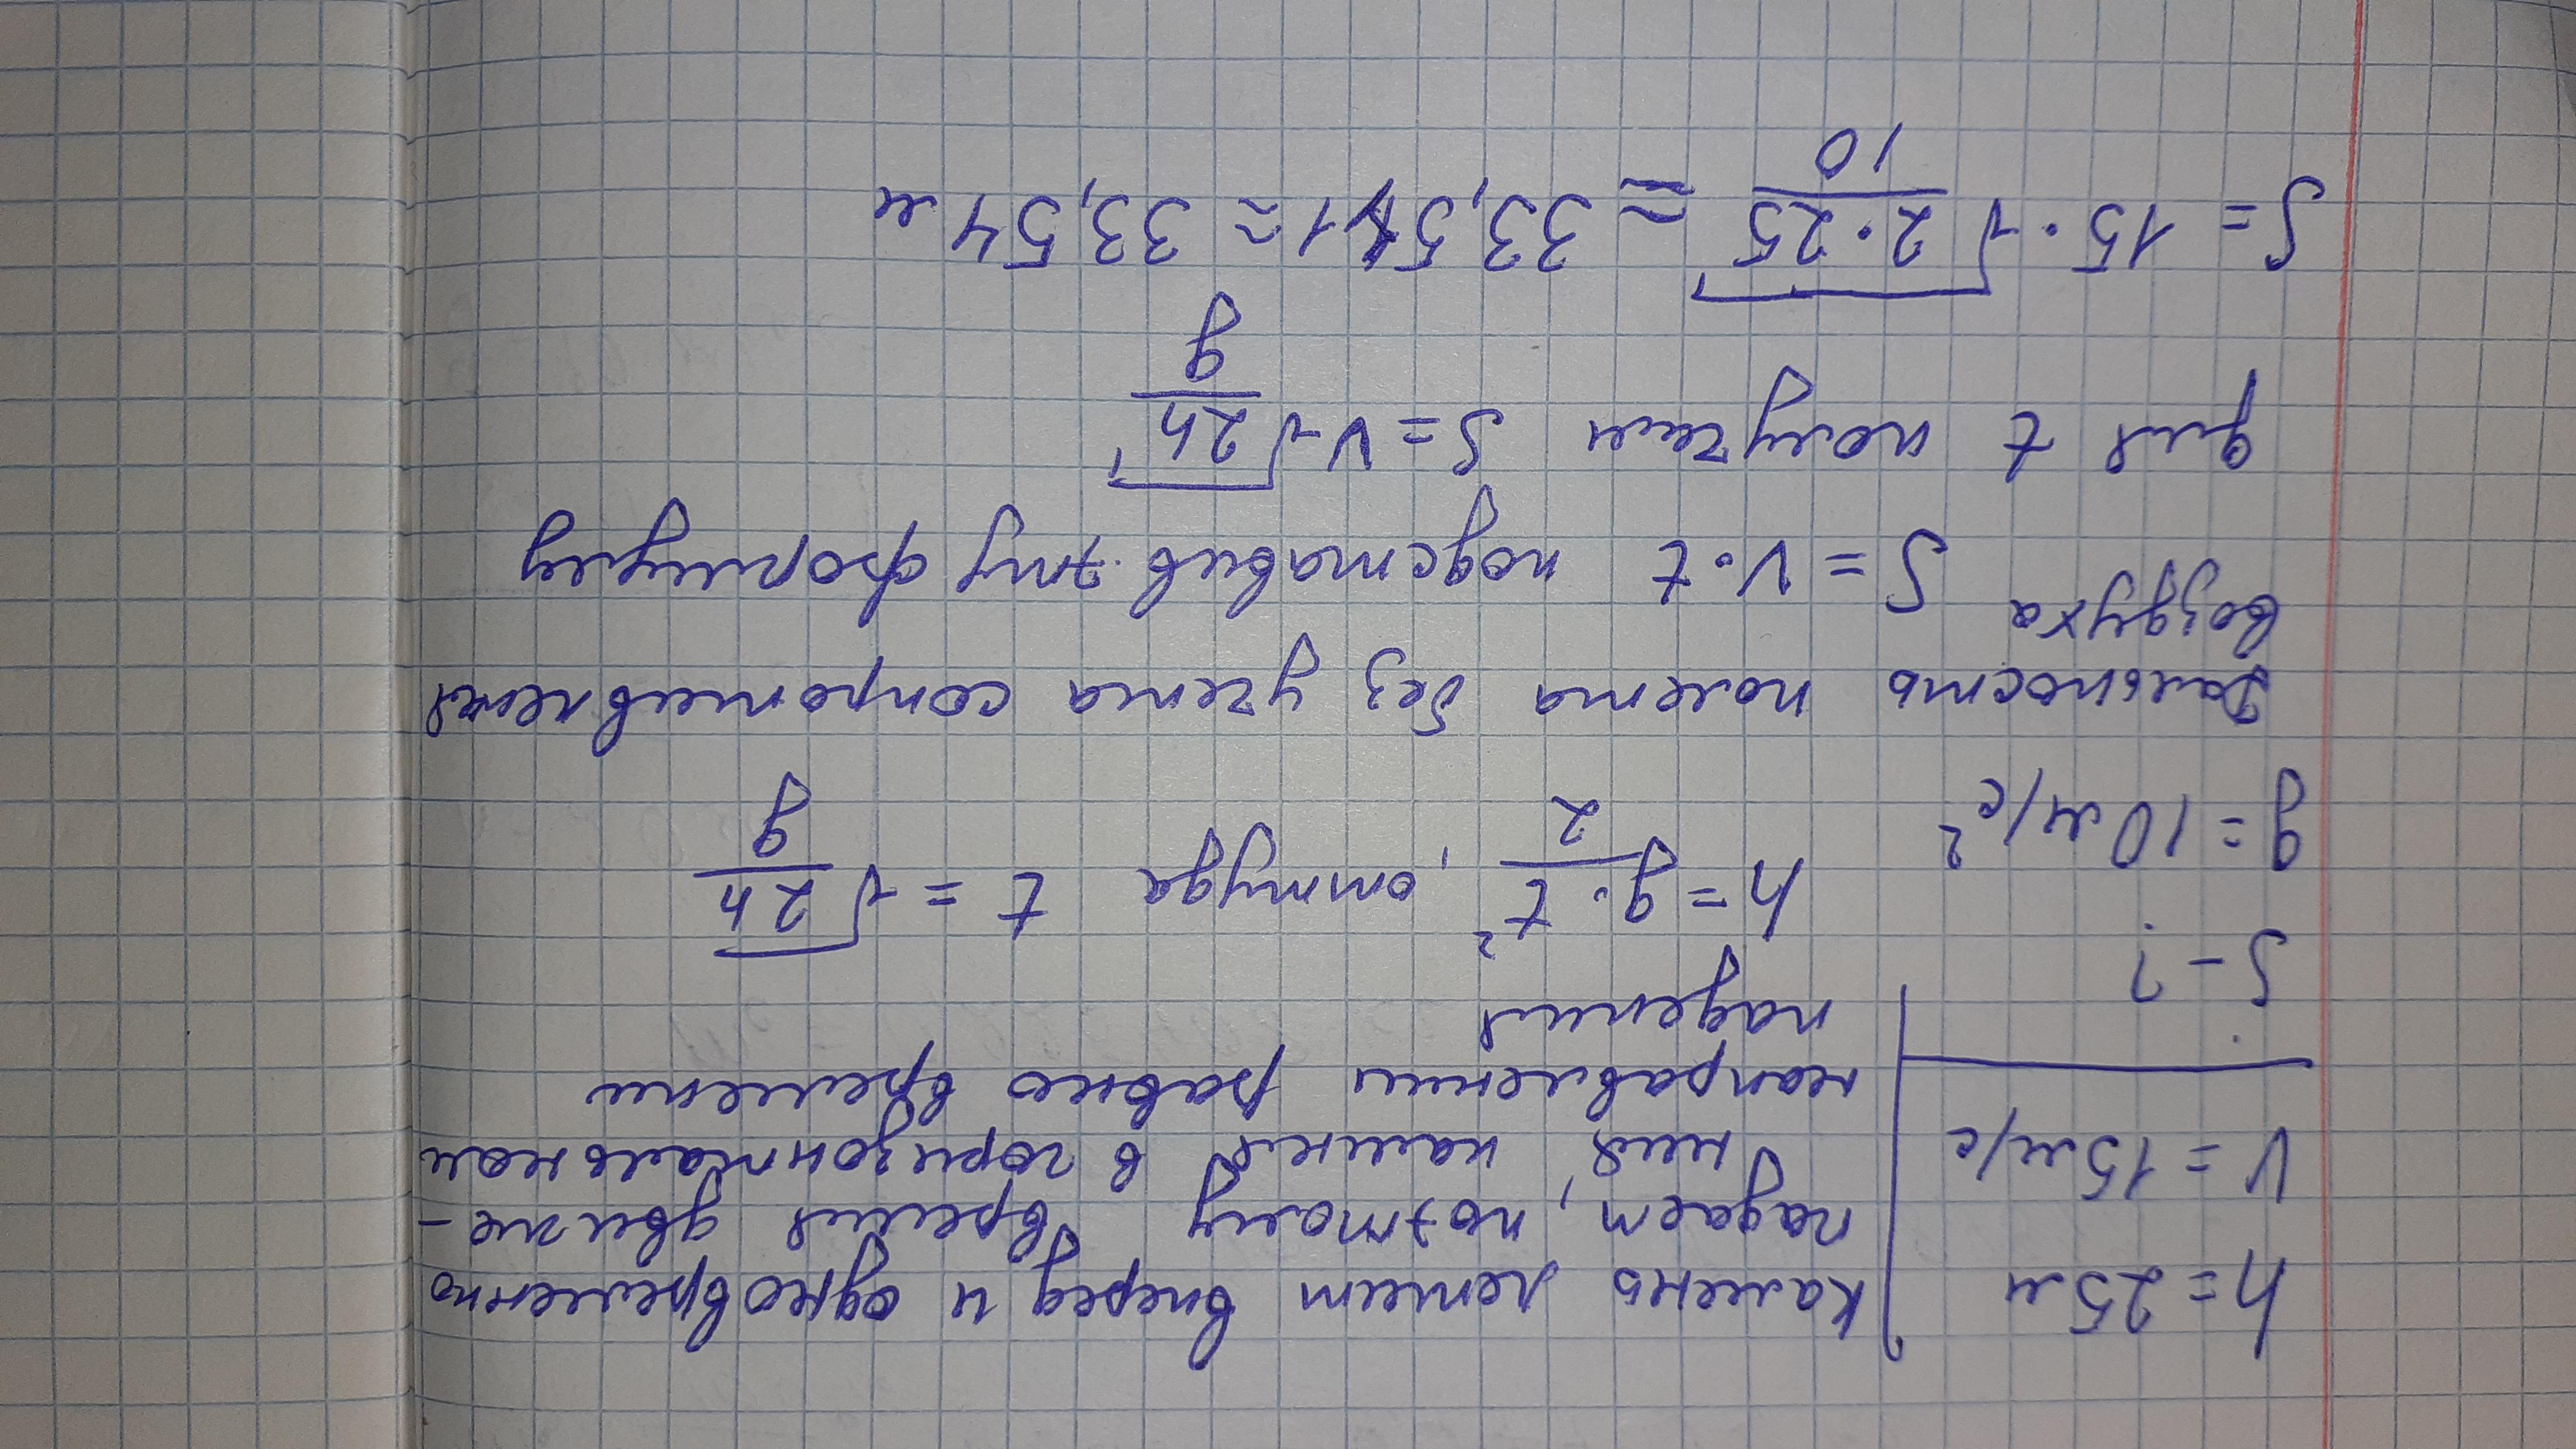 h = 25 м
V = 15 м/с
S - ?
g = 10 м/с²
Камень летит вперед и одновременно
падает, поэтому время движе-
ния камня в горизонтальном
направлении равно времени
падения
h = g·t²/2, оттуда t = √(2h/g)
Дальность полета без учета сопротивления
воздуха S = V·t подставив эту формулу
для t получаем S = V√(2h/g)
S = 15·√(2·25/10) ≈ 33,541 ≈ 33,54 м